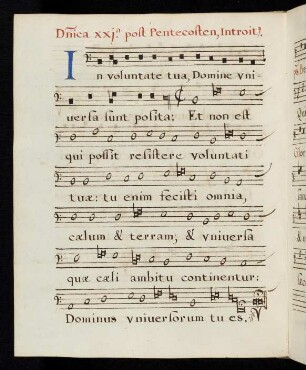 Dn̄ica xxj.ª post Pentecosten, Introit.ˢ
In voluntate tua, Domine vni-
uersa sunt posita: Et non est
qui possit resistere voluntati
tuæ: tu enim fecisti omnia,
cælum & terram; & vniuersa
quæ cæli ambitu continentur:
Dominus vniuersorum tu es.